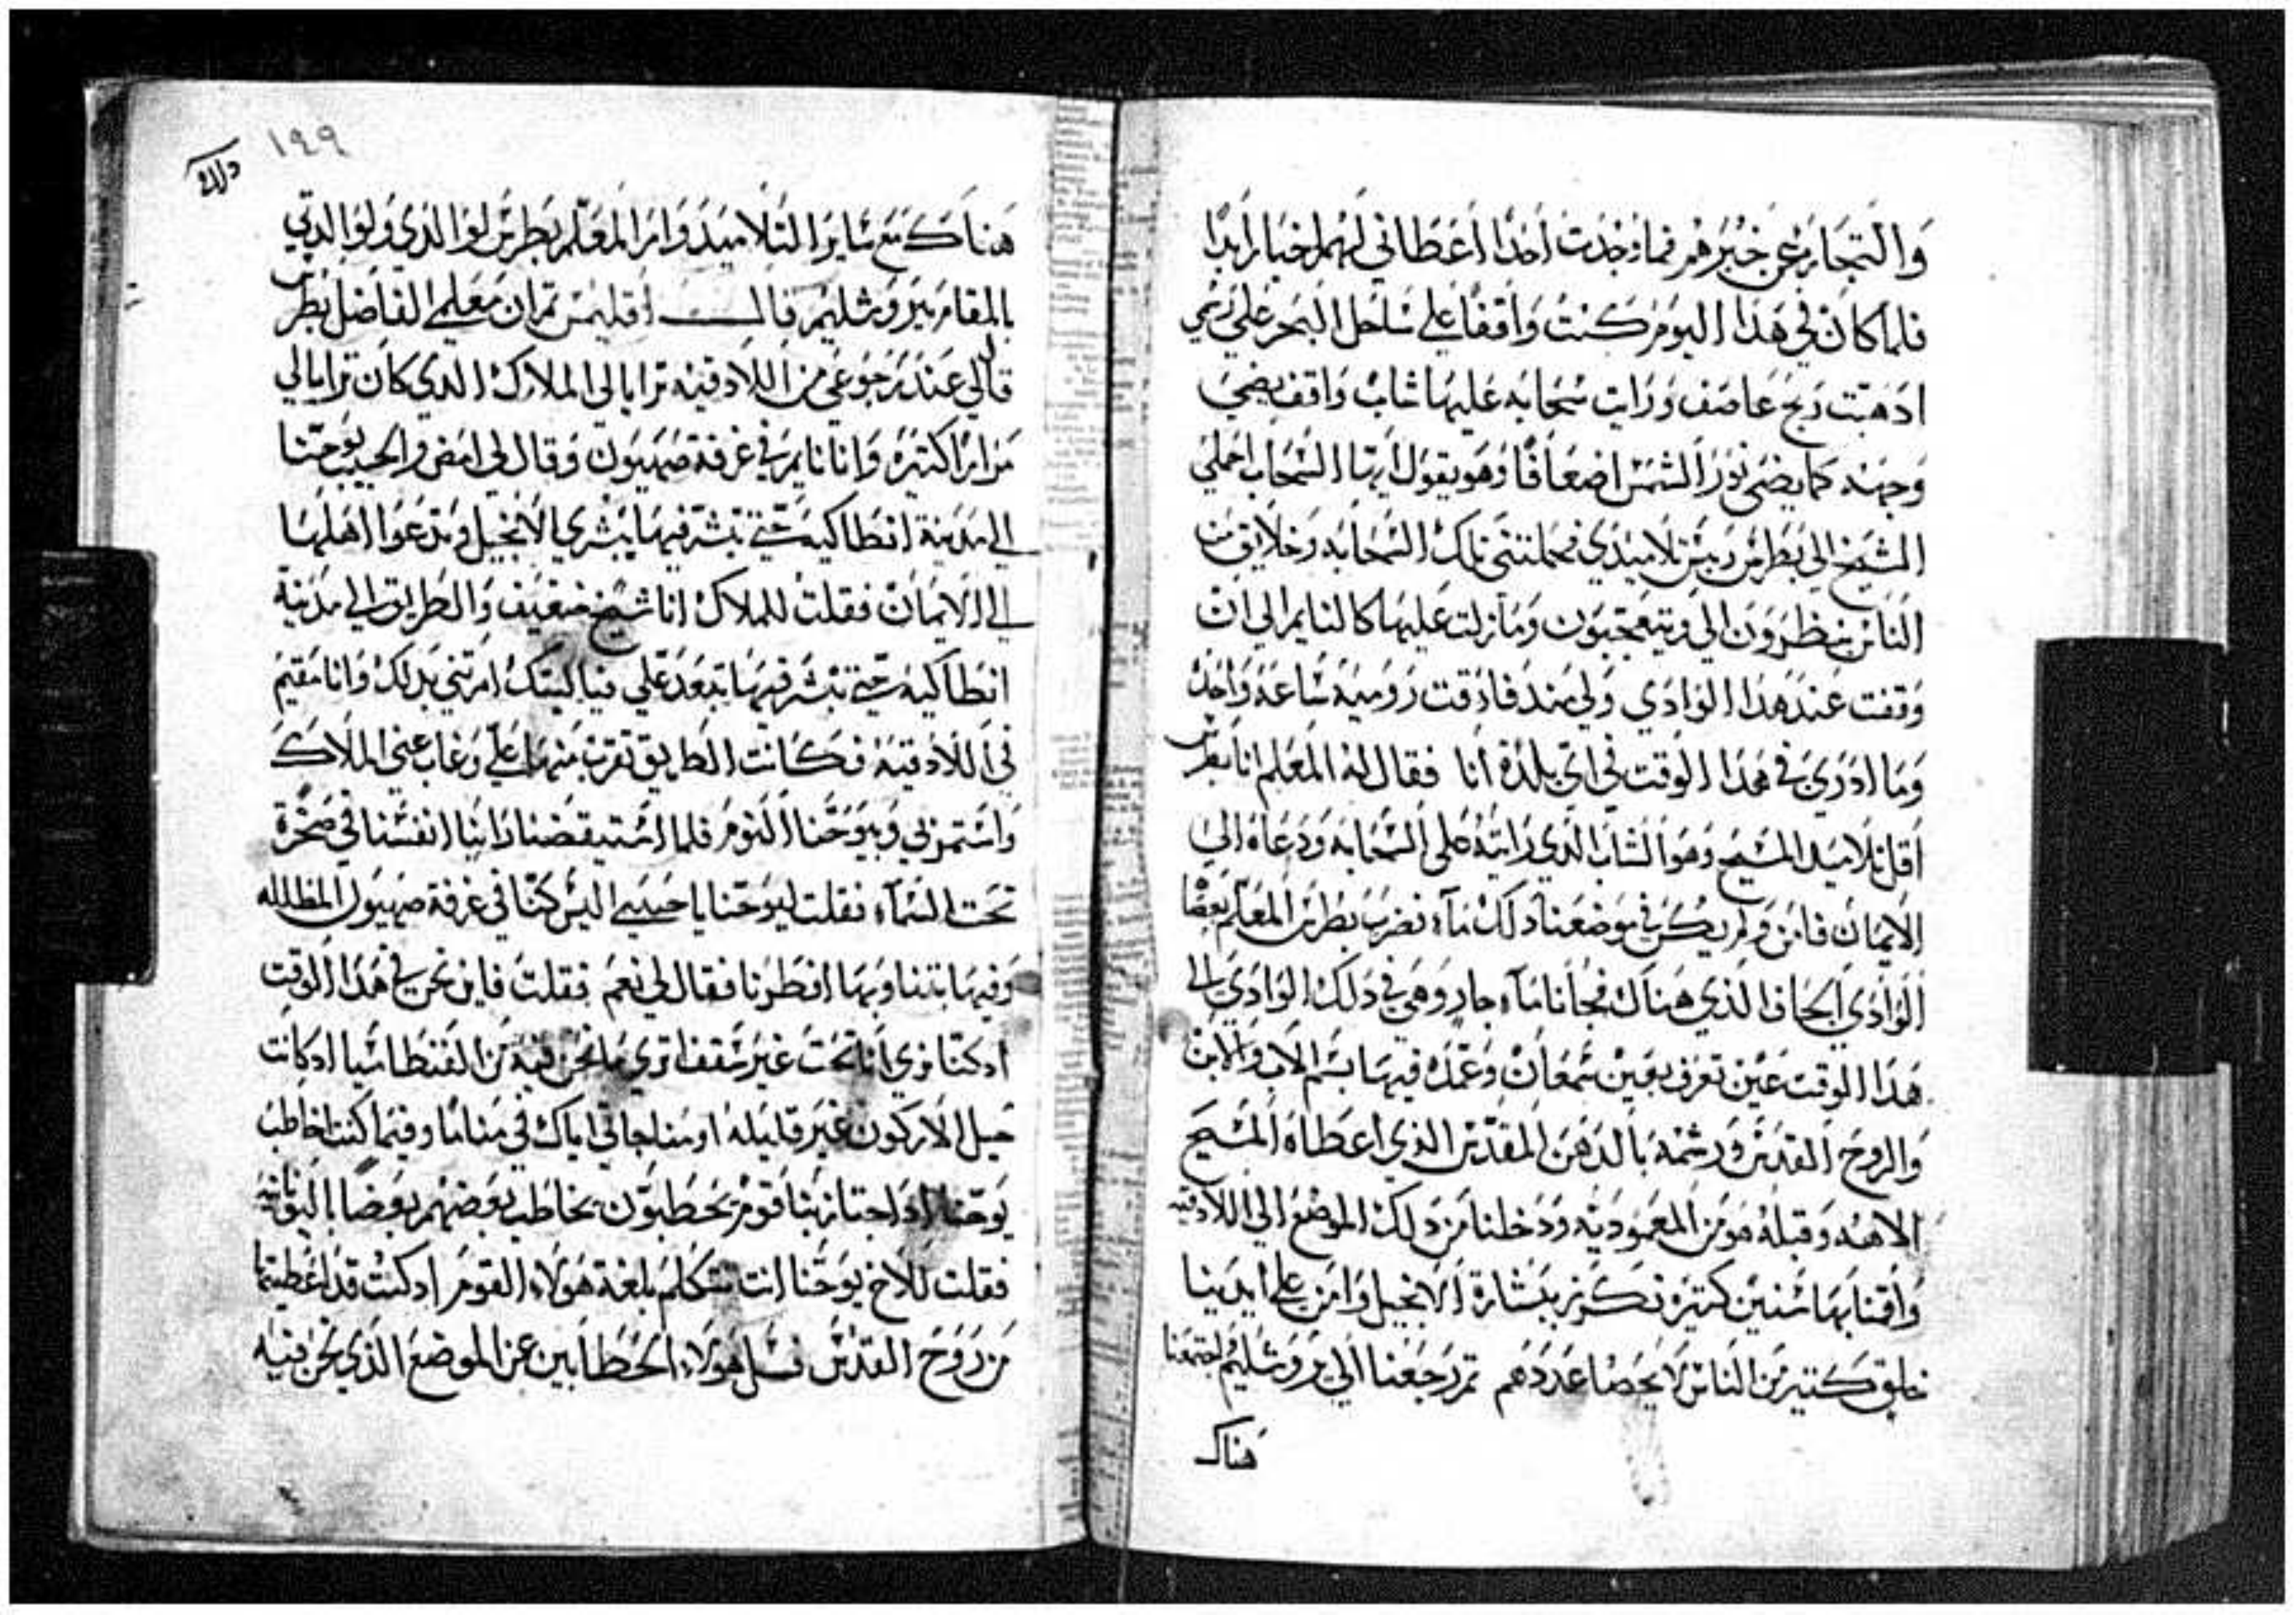 والتجار عن خبرهم فما وجدت احدا اعطاني لهم اخبار ابدا
فلما كان في هذا اليوم كنت واقفا على ساحل البحر على رسمي
ادهبت ريح عاصف ورات سحابه عليها شاب واقف يضي
وجهه كما يضي نور الشمس اضعافا وهو يقول ايتها السحاب احملي
الشيخ الى بطرس ريس تلاميدي فحملتني تلك السحابه وخلايق من
الناس ينظرون الي ويتعجبون وما زلت عليها كالنايم الى ان
وقفت عند هذا الوادي ولي مند فارقت روميه ساعه واحده
وما ادري في هذا الوقت في اي بلدة انا فقال له المعلم انا بطرس
اقل تلاميد المسيح وهو الشاب الذي رايته على السحابه ودعاه الى
الايمان فامن ولم يكن في موضعنا دلك ماء فضرب بطرس المعلم بعصا
الوادي الجاف الذي هناك فجانا ماء جار وهي في دلك الوادي الى
هذا الوقت عين تعرف بعين شمعان وعمده فيها بسم الاب والابن
والروح القدس ورشمه بالدهن المقدس الذي اعطاه المسيح
الاهنه وقبله هو من المعموديه ودخلنا من دلك الموضع الى اللادقيه
واقمنا بها سنين كتيره نكرز ببشارة الانجيل وامن على ايدينا
خلق كتير من الناس لا يحصا عددهم تم رجعنا الى يروشليم اجتمعنا
هناك
دلك
١٩٩
هناك مع ساير التلاميد وامر المعلم بطرس لوالدي ولوالدتي
بالمقام بيروشليم قال اقليمس تم ان معلمي الفاضل بطرس
قال لي عند رجوعي من اللادقيه ترايا لي الملاك الدي كان ترايا لي
مرارا كتيره وانا نايم في غرفة صهيون وقال لي امض والحبيب يوحنا
الى مدينة انطاكيه حتى تبشر فيها ببشري الانجيل وتدعوا اهلها
الى الايمان فقلت للملاك انا شيخ ضعيف والطريق الى مدينة
انطاكيه حتى نبشر فيها تبعد علي فيا ليتك امرتني بدلك وانا مقيم
في اللادقيه فكانت الطريق تقرب منها علي وغاب عني الملاك
واستمر بي وبيوحنا النوم فلما استيقضنا راينا انفسنا في صخرة
تحت السماء فقلت ليوحنا يا حبيبي اليس كنا في غرفة صهيون المظلله
وفيها بتنا وبها افطرنا فقال لي نعم فقلت فاين نحن في هذا الوقت
ادكنا نري انا تحت غير سقف اتري ما نحن فيه من الفنطاسيا ادكانت
حيل الاركون غير قليله او مناجاتي اياك في مناما وفيما كنت اخاطب
يوحنا اد اجتاز بنا قوم يحطبون يخاطب بعضهم بعضا باليونانيه
فقلت للاخ يوحنا انت تتكلم بلغة هولاء القوم ادكنت قد اعطيتها
من روح القدس فسل هولاء الحطابين عن الموضع الذي نحن فيه